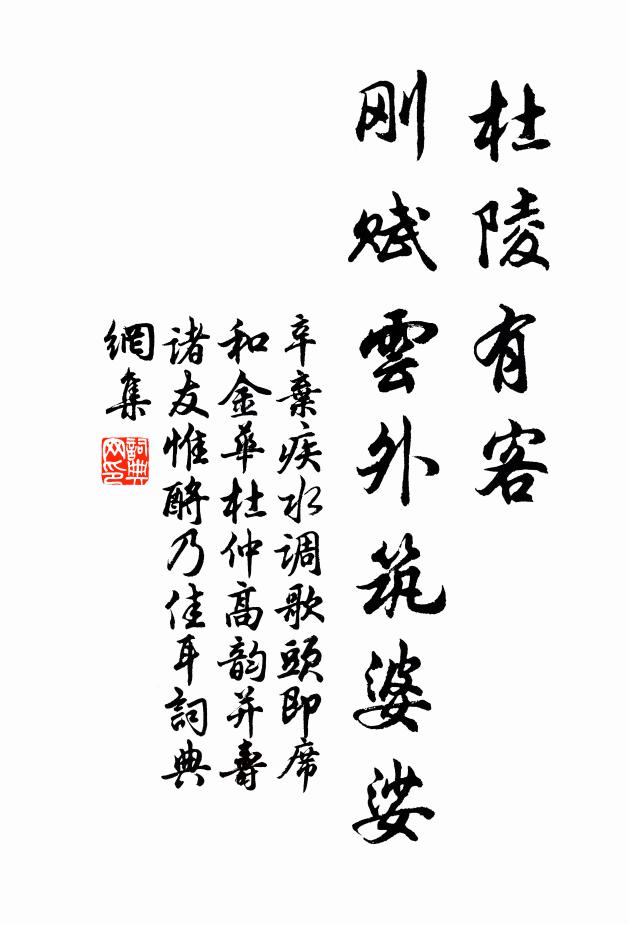 杜陵有客
刚赋雲外筑婆娑
辛棄疾水调歌頭即席
和金華杜仲高韵并壽
诸友惟酹乃佳耳詞典
網集
詞典网印